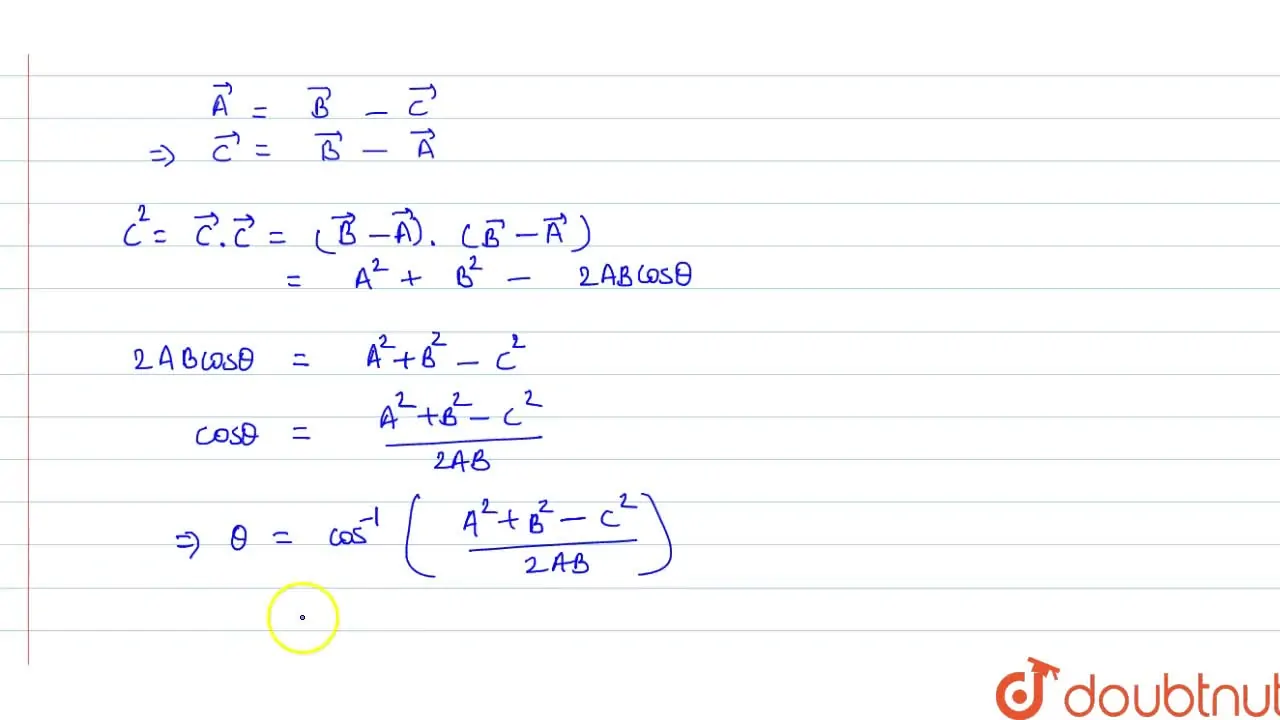 A⃗ = B⃗ − C⃗
⇒ C⃗ = B⃗ − A⃗
C² = C⃗.C⃗ = (B⃗ − A⃗). (B⃗ − A⃗)
= A² + B² − 2ABcosθ
2ABcosθ = A²+B² − C²
cosθ = (A²+B² − C²)/2AB
⇒ θ = cos⁻¹ ((A²+B² − C²)/2AB)
doubtnut